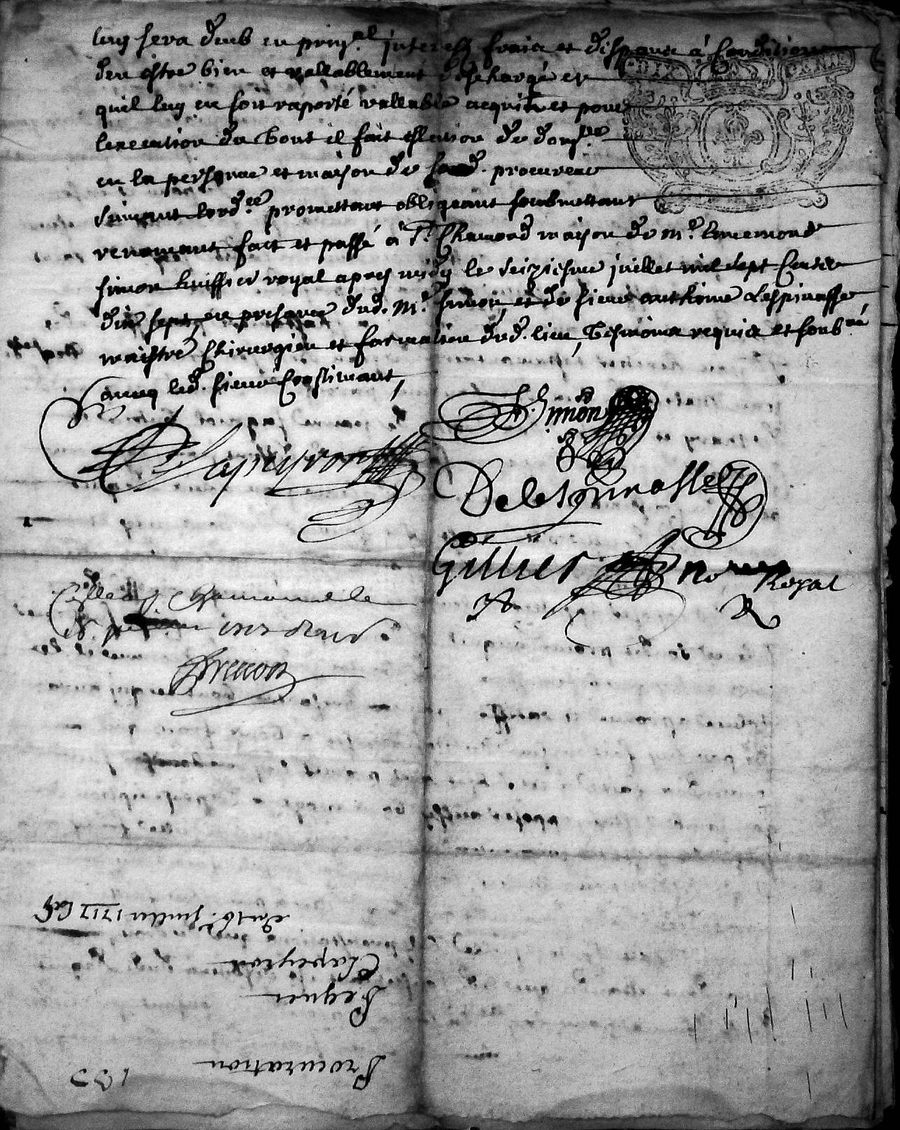 luy sera deub en prin.al interest fraix et despans à Condition
d'en estre bien et vallablement deschargé et
quil luy en soit raporté vallable acquit et pour
lexecution du tout il fait eslection de dom.le
en la personne et maison de sond. procureur
suivant lord.ce promettant obligeant soubmettant
renonçant fait et passé à S.t Chamond maison de m.e Ennemond
simon huissier royal apres midy le seiziesme juillet mil sept Cents
dix sept en presance dud. m.e simon et de sieur anthoine Lespinasse
maistre Chirurgien et dud. lieu, Tesmoins requis et soub.nés
avecq led. sieur Constituant,
Clapeyron
Simon
Delespinasse
Gillier no.re Royal
R
Chamond le
1717
en 16.e juillet 1717
Clapeyron
Procuration